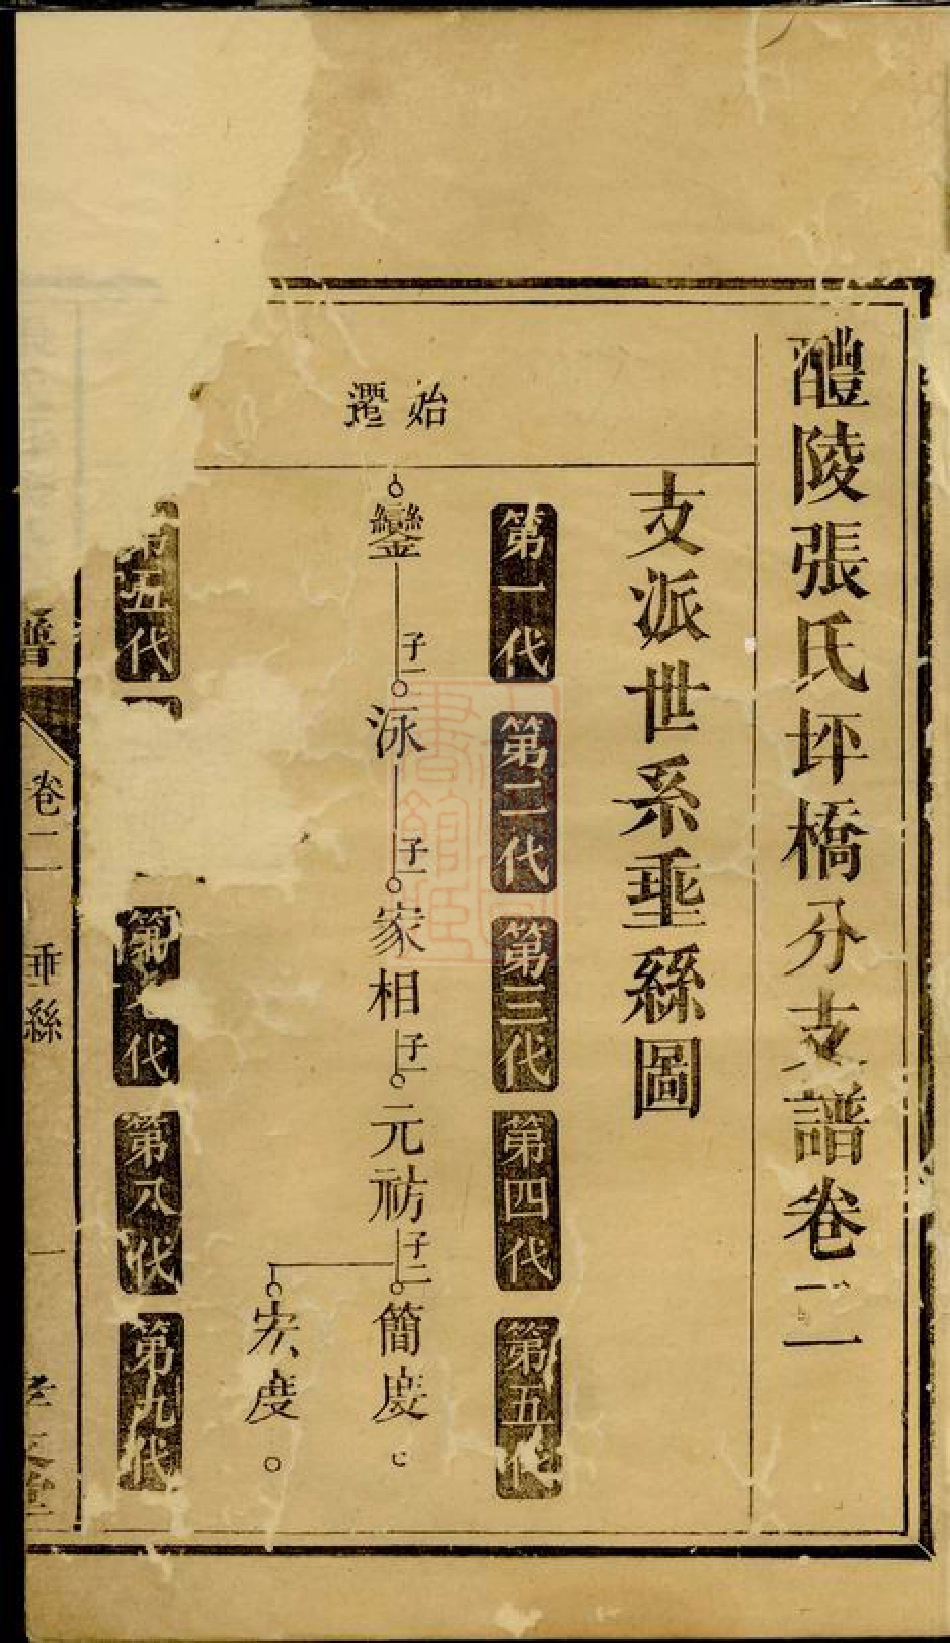 醴陵張氏坪橋分支譜卷二
支派世系垂絲圖
第一代 第二代 第三代 第四代 第五代
始遷
鑾 子一 泳 子一 家相 子一 元祊 子二 簡慶
宏度
五代 代 第八代 第九代
譜 卷二 垂絲 一